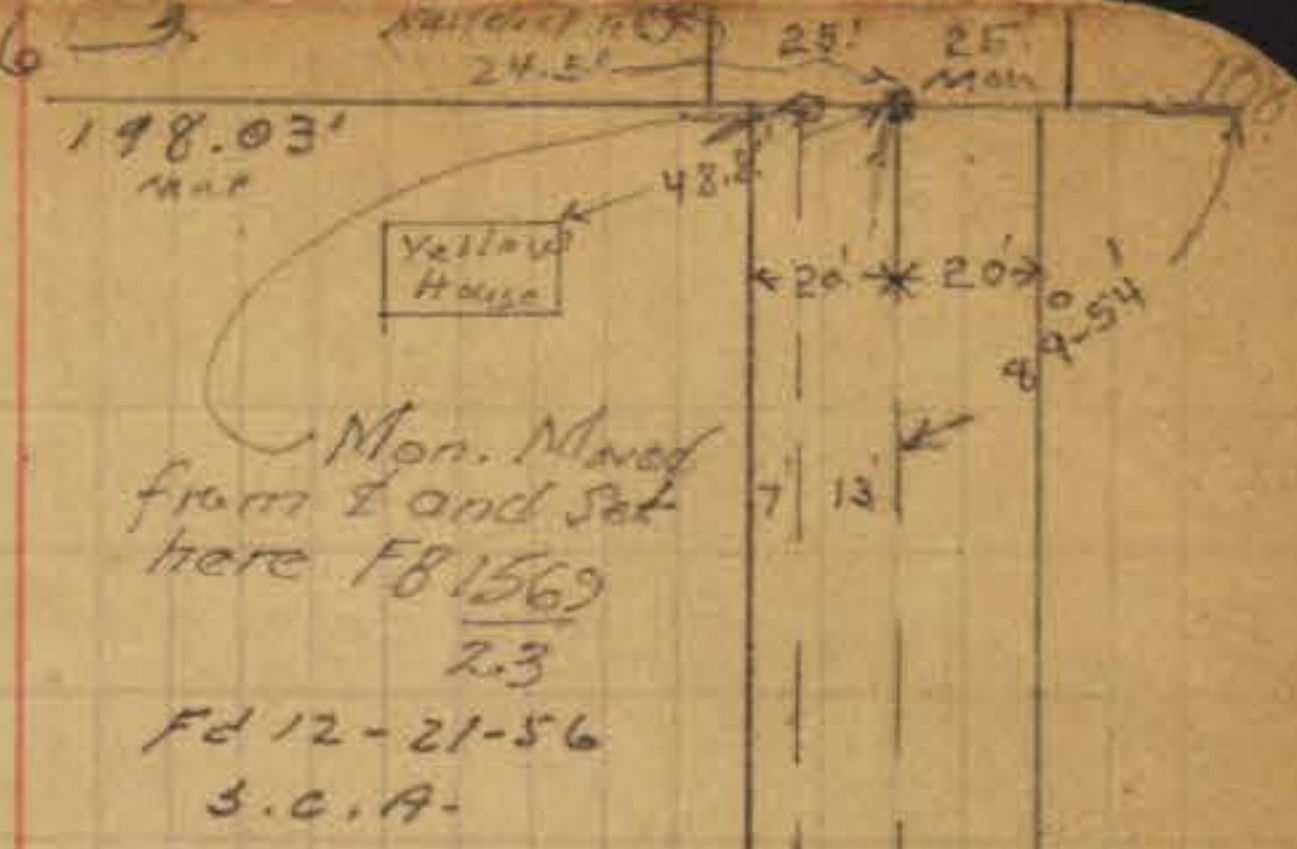 6
25'
25'
24.5'
Mon
198.03'
48.8'
Yellow
House
20'
20'
89°-54'
Mon. Moved
from ⅊ and Set
7'
13'
here FB 1569
2.3
Fd 12-21-56
S.C.A-